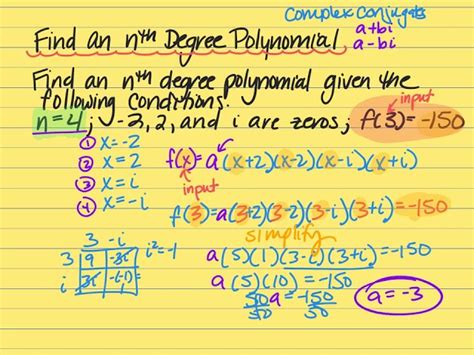 complex conjugates
a+bi
a-bi
Find an nth Degree Polynomial
Find an nth degree polynomial given the
following conditions:
input
n=4; -3, 2, and i are zeros; f(3)=-150
① x=-2
② x=2
③ x=i
④ x=-i
f(x)=a(x+2)(x-2)(x-i)(x+i)
input
f(3)=a(3+2)(3-2)(3-i)(3+i)=-150
simplify
a(5)(1)(3-i)(3+i)=-150
a(5)(10)=-150
50a=-150
50 50
a=-3
3 -i
3 9 -3i
i 3i -(-1)
i²=-1